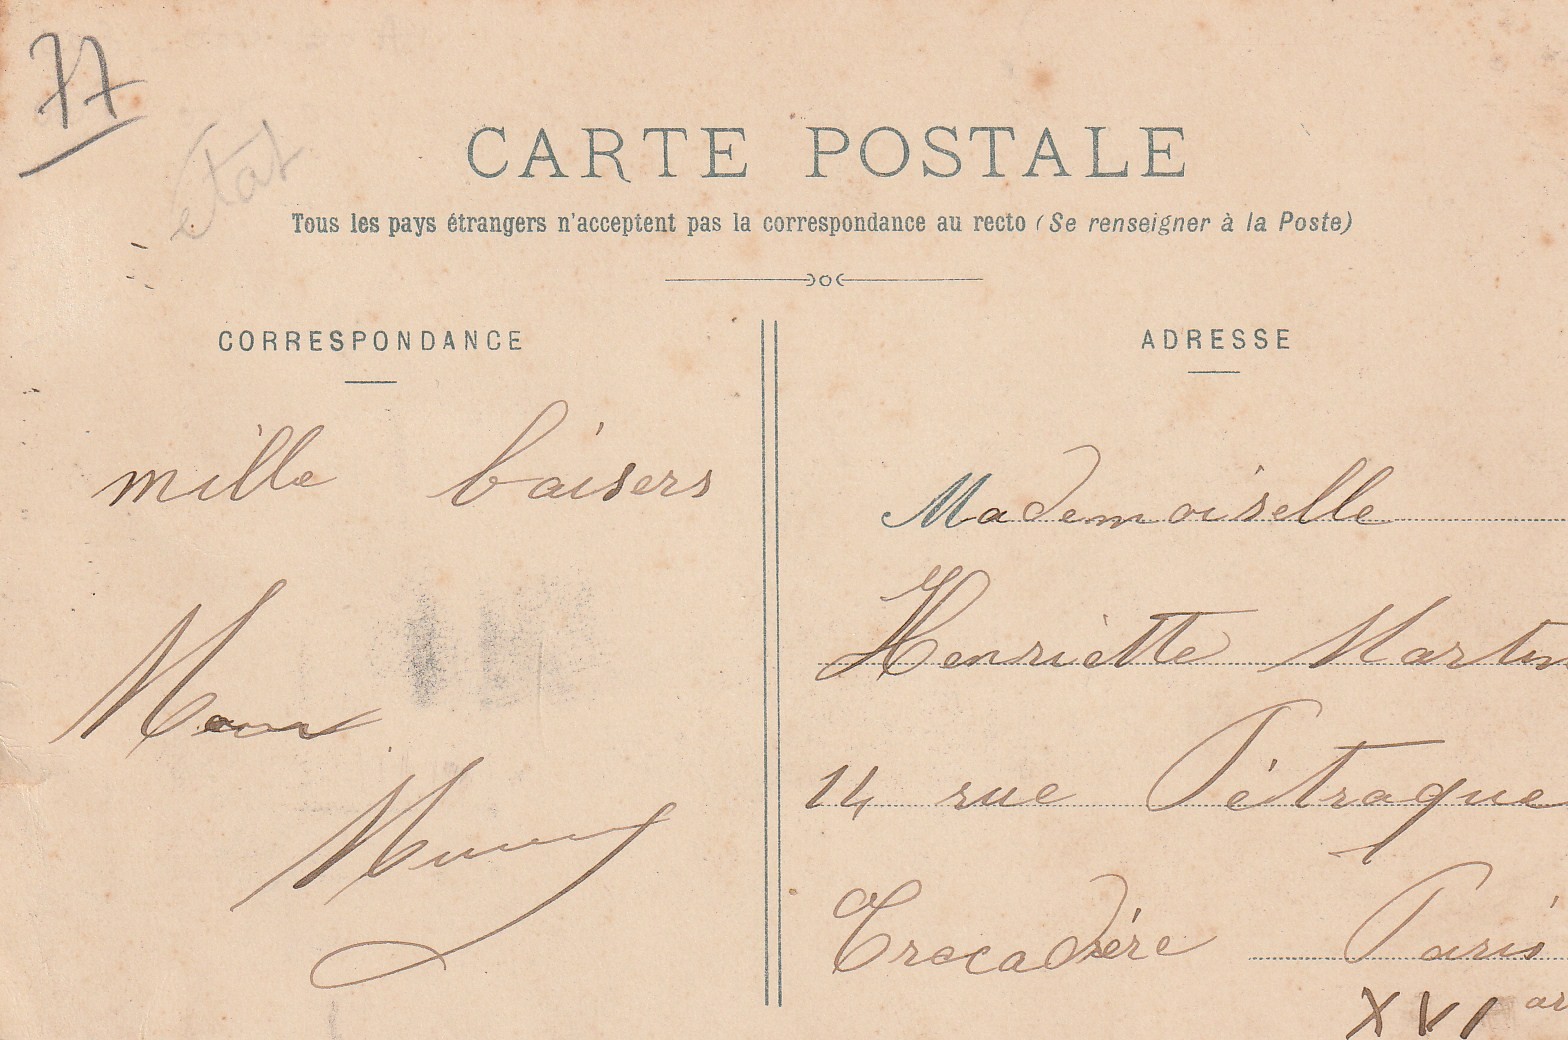 77
état
CARTE POSTALE
Tous les pays étrangers n'acceptent pas la correspondance au recto (Se renseigner à la Poste)
CORRESPONDANCE
mille baisers
ADRESSE
Mademoiselle
Henriette Martin
14 rue Pétraque
Trocadére Paris
XVI ar